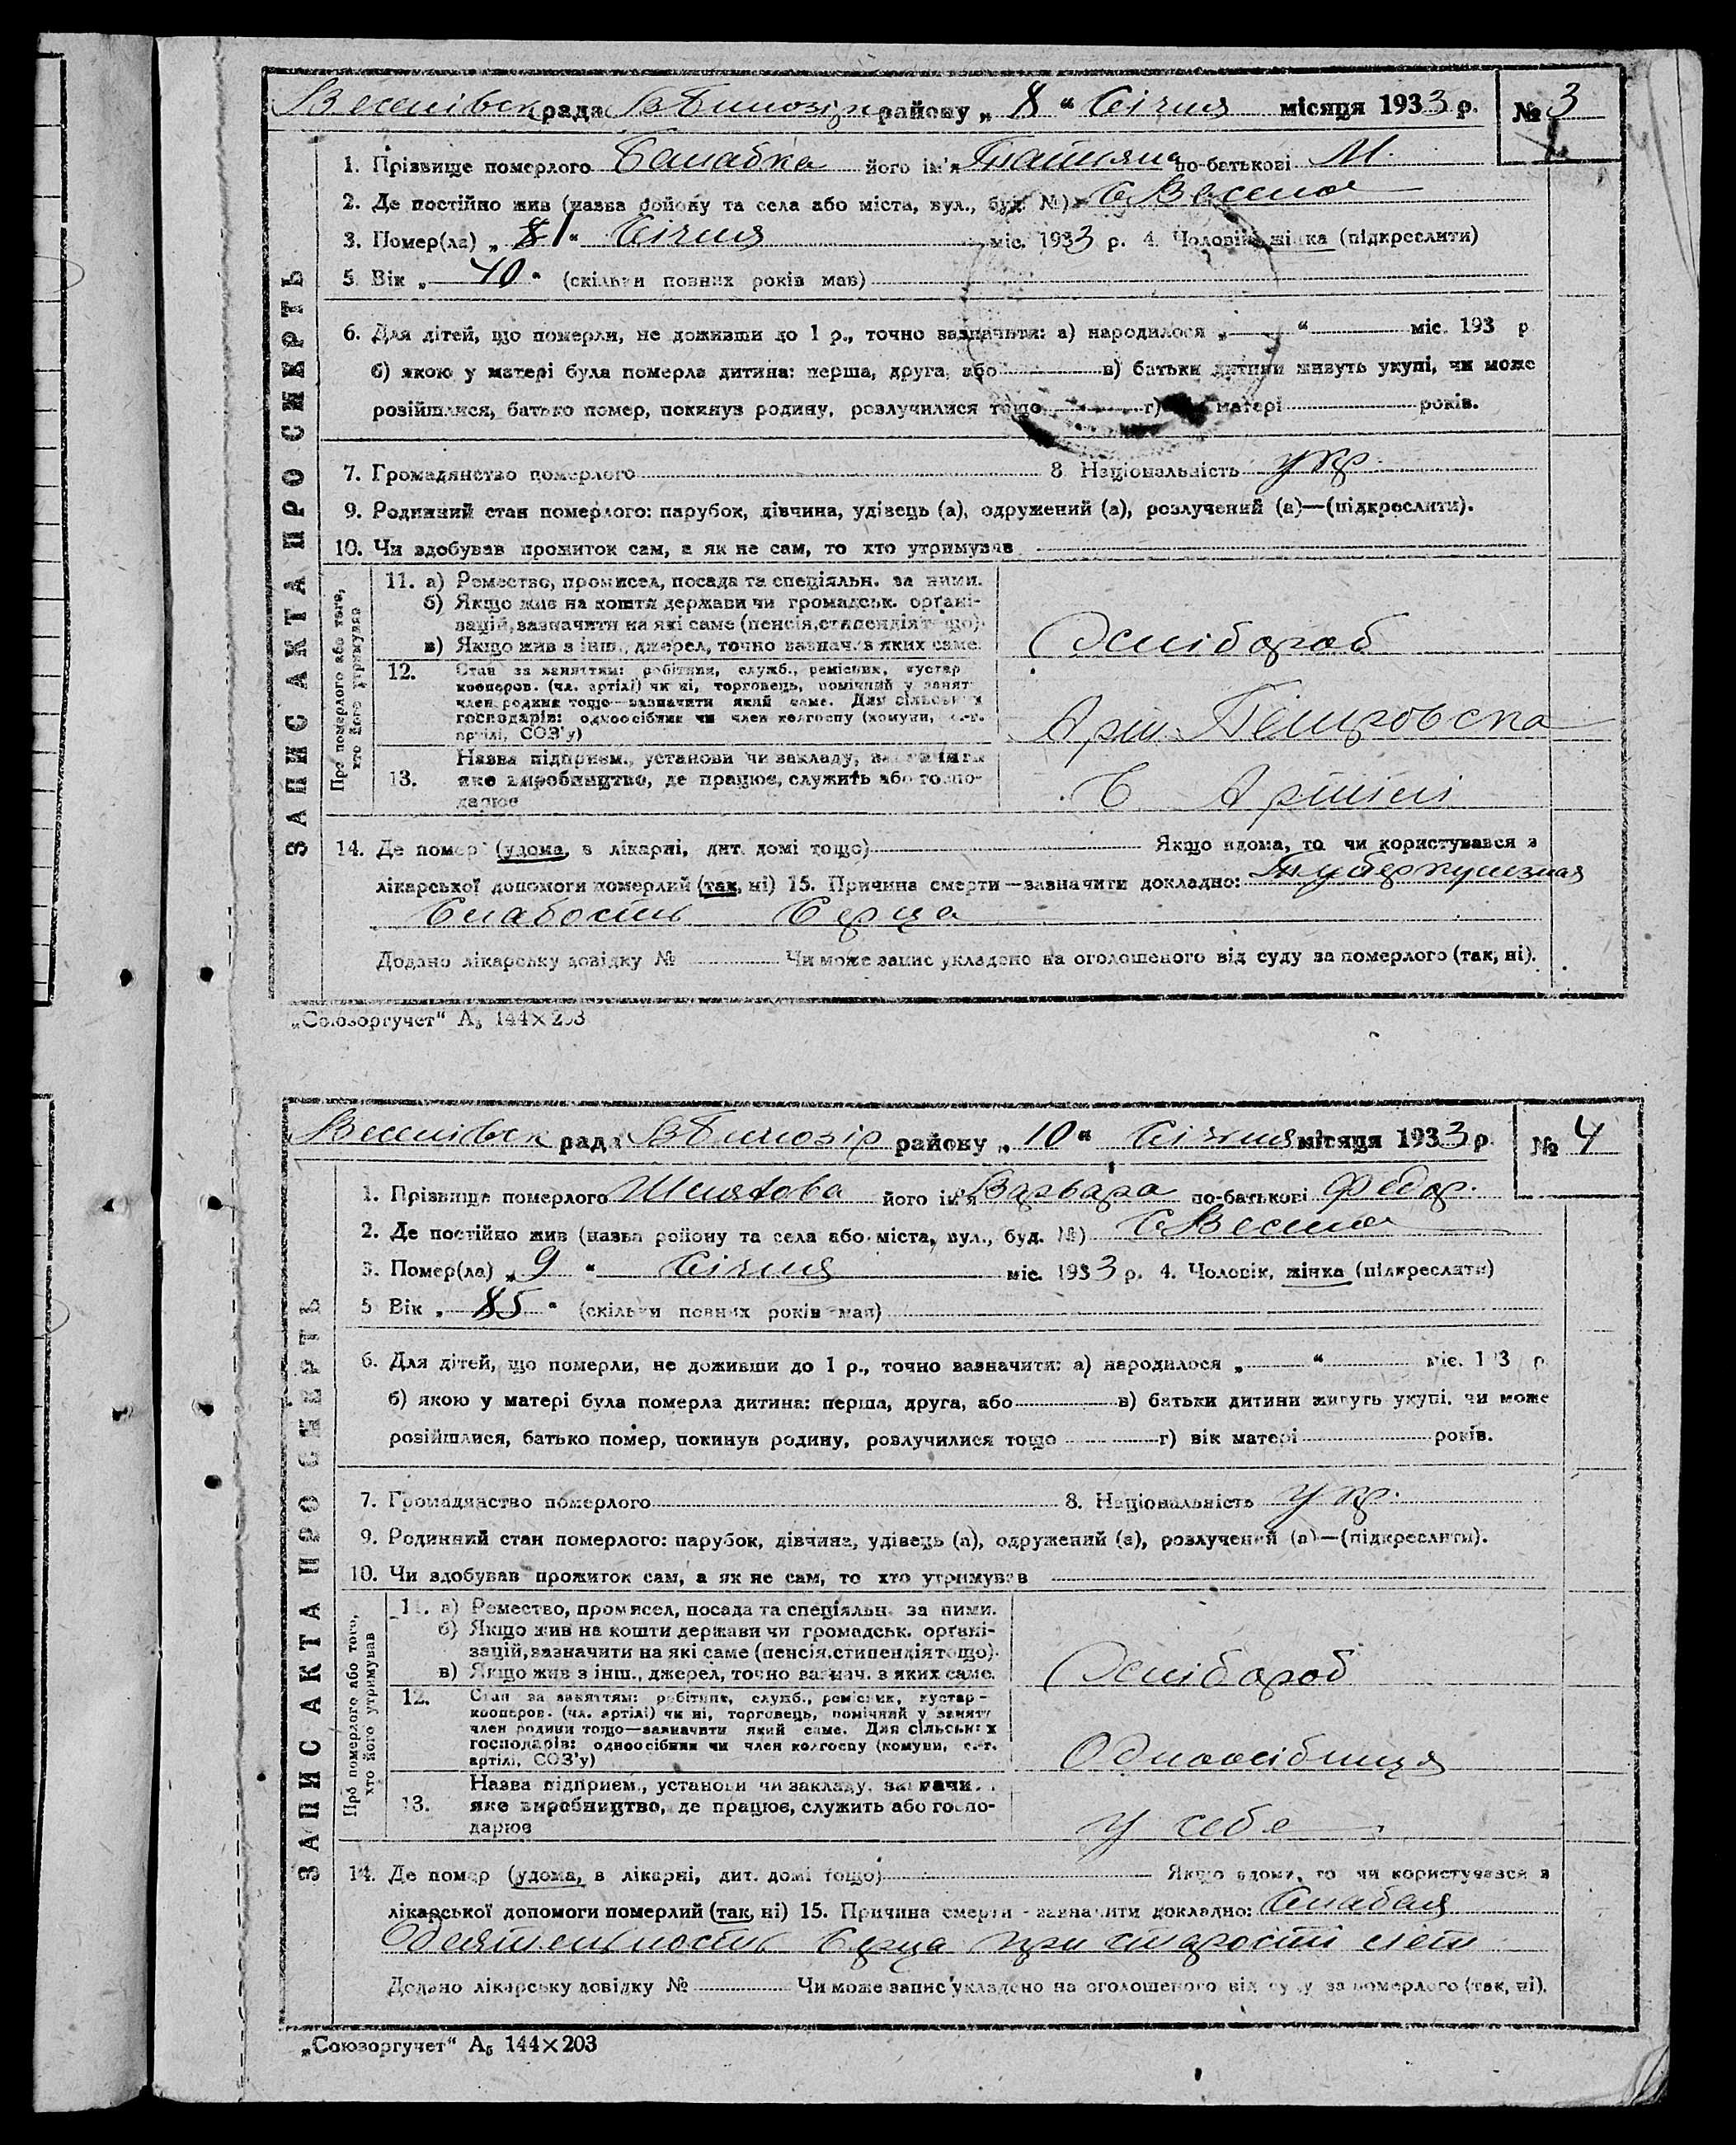 Веселівськ рада В Білозір району „ 8 “ Січня місяця 1933 р. № 3
1. Прізвище померлого Балабка його ім'я Татияна по-батькові М.
2. Де постійно жив (назва району та села або міста, вул., буд. №) с Весела
3. Помер(ла) „ 8 “ Січня міс. 1933 р. 4. Чоловік, жінка (підкреслити)
5 Вік „ 40 “ (скільки повних років мав)
6. Для дітей, що померли, не доживши до 1 р., точно вазначити: а) народилося „ “ міс. 193 р
б) якою у матері була померла дитина: перша, друга, або в) батьки дитини живуть укупі, чи може
розійшлися, батько помер, покинув родину, розлучилися тощо г) матері років.
7. Громадянство померлого 8 Національність укр.
9. Родинний стан померлого: парубок, дівчина, удівець (а), одружений (а), розлучений (а)—(підкреслити).
10. Чи здобував прожиток сам, а як не сам, то хто утримував
ЗАПИС АКТА ПРО СМЕРТЬ
Про померлого або того, хто його утримував
11. а) Ремество, промисел, посада та спеціяльн. за ними.
б) Якщо жив на кошти держави чи громадськ. орґані-
зацій, вазначити на які саме (пенсія, стипендія тощо).
в) Якщо жив з інш., джерел, точно вазнач. з яких саме.
Хлібороб
12. Стан за заняттям: робітник, служб., ремісник, кустар
кооперов. (чл. артілі) чи ні, торговець, помічний у занят
член родини тощо—вазначити який саме. Для сільських
господарів: одноосібник чи член колгоспу (комуни, с.-г.
артілі, СОЗ'у)
Арт. Петровска
13. Назва підприєм., установи чи закладу, вазначити
яке виробництво, де працює, служить або госпо-
дарює
В Артілі
14. Де помер (удома, в лікарні, дит. домі тощо) Якщо вдома, то чи користувався з
лікарської допомоги померлий (так, ні) 15. Причина смерти—вазначити докладно: Туберкулезная
Слабость Серца
Додано лікарську довідку № Чи може запис укладено на оголошеного від суду за померлого (так, ні).
„Союзоргучет“ А₅ 144×203
Веселівськ рада В Білозір району „ 10 “ Січня місяця 1933 р № 4
1. Прізвище померлого його ім'я Варвара по-батькові Федор.
2. Де постійно жив (назва району та села або міста, вул., буд. №) с Весела
3. Помер(ла) „ 9 “ Січня міс. 1933 р. 4. Чоловік, жінка (підкреслити)
5 Вік „ 85 “ (скільки повних років мав)
6. Для дітей, що померли, не доживши до 1 р., точно вазначити: а) народилося „ “ міс. 193 р
б) якою у матері була померла дитина: перша, друга, або в) батьки дитини живуть укупі, чи може
розійшлися, батько помер, покинув родину, розлучилися тощо г) вік матері років.
7. Громадянство померлого 8. Національність укр.
9. Родинний стан померлого: парубок, дівчина, удівець (а), одружений (а), розлучений (а)—(підкреслити).
10. Чи здобував прожиток сам, а як не сам, то хто утримував
ЗАПИС АКТА ПРО СМЕРТЬ
Про померлого або того, хто його утримував
11. а) Ремество, промисел, посада та спеціяльн. за ними.
б) Якщо жив на кошти держави чи громадськ. орґані-
зацій, вазначити на які саме (пенсія, стипендія тощо).
в) Якщо жив з інш., джерел, точно вазнач. з яких саме.
Хлібороб
12. Стан за заняттям: робітник, служб., ремісник, кустар-
кооперов. (чл. артілі) чи ні, торговець, помічний у занят
член родини тощо—вазначити який саме. Для сільських
господарів: одноосібник чи член колгоспу (комуни, с.-г.
артілі, СОЗ'у)
Одноосібниця
13. Назва підприєм., установи чи закладу, вазначи.
яке виробництво, де працює, служить або госпо-
дарює
у себе
14. Де помер (удома, в лікарні, дит. домі тощо) Якщо вдома, то чи користувався з
лікарської допомоги померлий (так, ні) 15. Причина смерти - вазначити докладно: Слабая
деятельность Серца при старости лет
Додано лікарську довідку № Чи може запис укладено на оголошеного від суду за померлого (так, ні).
„Союзоргучет“ А₅ 144×203